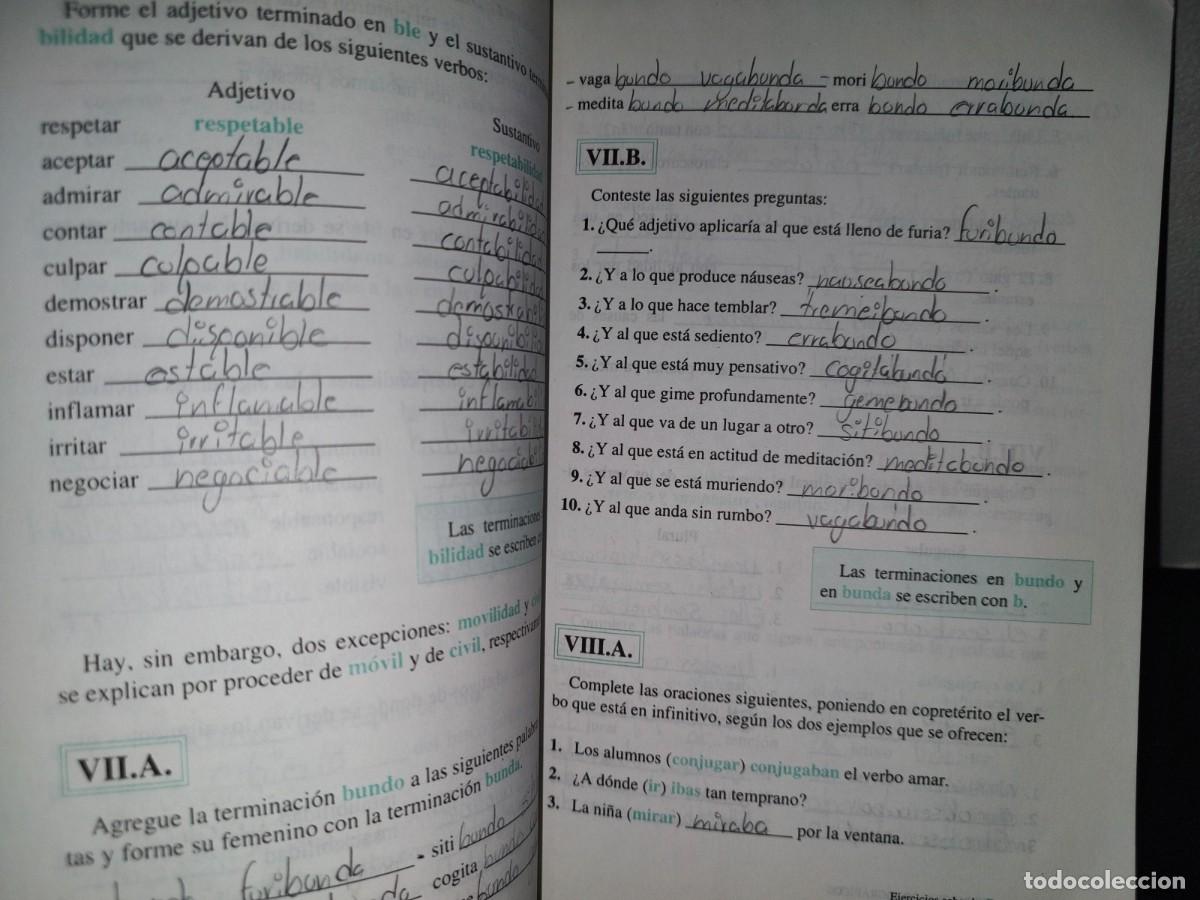 Forme el adjetivo terminado en ble y el sustantivo
bilidad que se derivan de los siguientes verbos:
Adjetivo
Sustantivo
respetar respetable respetabilidad
aceptar aceptable aceptabilidad
admirar admirable admirabilidad
contar contable contabilidad
culpar culpable culpabilidad
demostrar demostrable
disponer disponible
estar estable estabilidad
inflamar inflamable
irritar irritable
negociar negociable
Las terminaciones
bilidad se escriben
Hay, sin embargo, dos excepciones: movilidad y
se explican por proceder de móvil y de civil,
VII.A.
Agregue la terminación bundo a las siguientes
tas y forme su femenino con la terminación bunda.
furibunda - siti bundo
cogita bundo
- vaga bundo vagabunda - mori bundo moribunda
- medita bundo meditabunda erra bundo errabunda
VII.B.
Conteste las siguientes preguntas:
1. ¿Qué adjetivo aplicaría al que está lleno de furia? furibundo
.
2. ¿Y a lo que produce náuseas? nauseabundo .
3. ¿Y a lo que hace temblar? tremeibundo .
4. ¿Y al que está sediento? errabundo .
5. ¿Y al que está muy pensativo? cogitabundo .
6. ¿Y al que gime profundamente? gemebundo .
7. ¿Y al que va de un lugar a otro? sitibundo .
8. ¿Y al que está en actitud de meditación? meditabundo .
9. ¿Y al que se está muriendo? moribundo
10. ¿Y al que anda sin rumbo? vagabundo .
Las terminaciones en bundo y
en bunda se escriben con b.
VIII.A.
Complete las oraciones siguientes, poniendo en copretérito el ver-
bo que está en infinitivo, según los dos ejemplos que se ofrecen:
1. Los alumnos (conjugar) conjugaban el verbo amar.
2. ¿A dónde (ir) ibas tan temprano?
3. La niña (mirar) miraba por la ventana.
todocoleccion